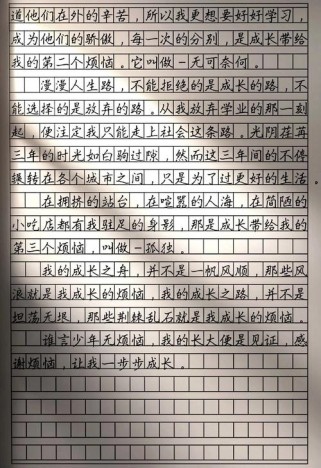 道他们在外的辛苦，所以我更想要好好学习，
成为他们的骄傲，每一次的分别，是成长带给
我的第二个烦恼。它叫做-无可奈何。
漫漫人生路，不能拒绝的是成长的路，不
能选择的是放弃的路。从我放弃学业的那一刻
起，便注定我只能走上社会这条路。光阴荏苒
三年的时光如白驹过隙，然而这三年间的不停
辗转在各个城市之间，只是为了过更好的生活。
在拥挤的站台，在喧嚣的人海，在简陋的
小吃店都有我驻足的身影，那是成长带给我的
第三个烦恼，叫做-孤独。
我的成长之舟，并不是一帆风顺，那些风
浪就是我成长的烦恼，我的成长之路，并不是
坦荡无垠，那些荆棘乱石就是我成长的烦恼。
谁言少年无烦恼，我的长大便是见证，感
谢烦恼，让我一步步成长。